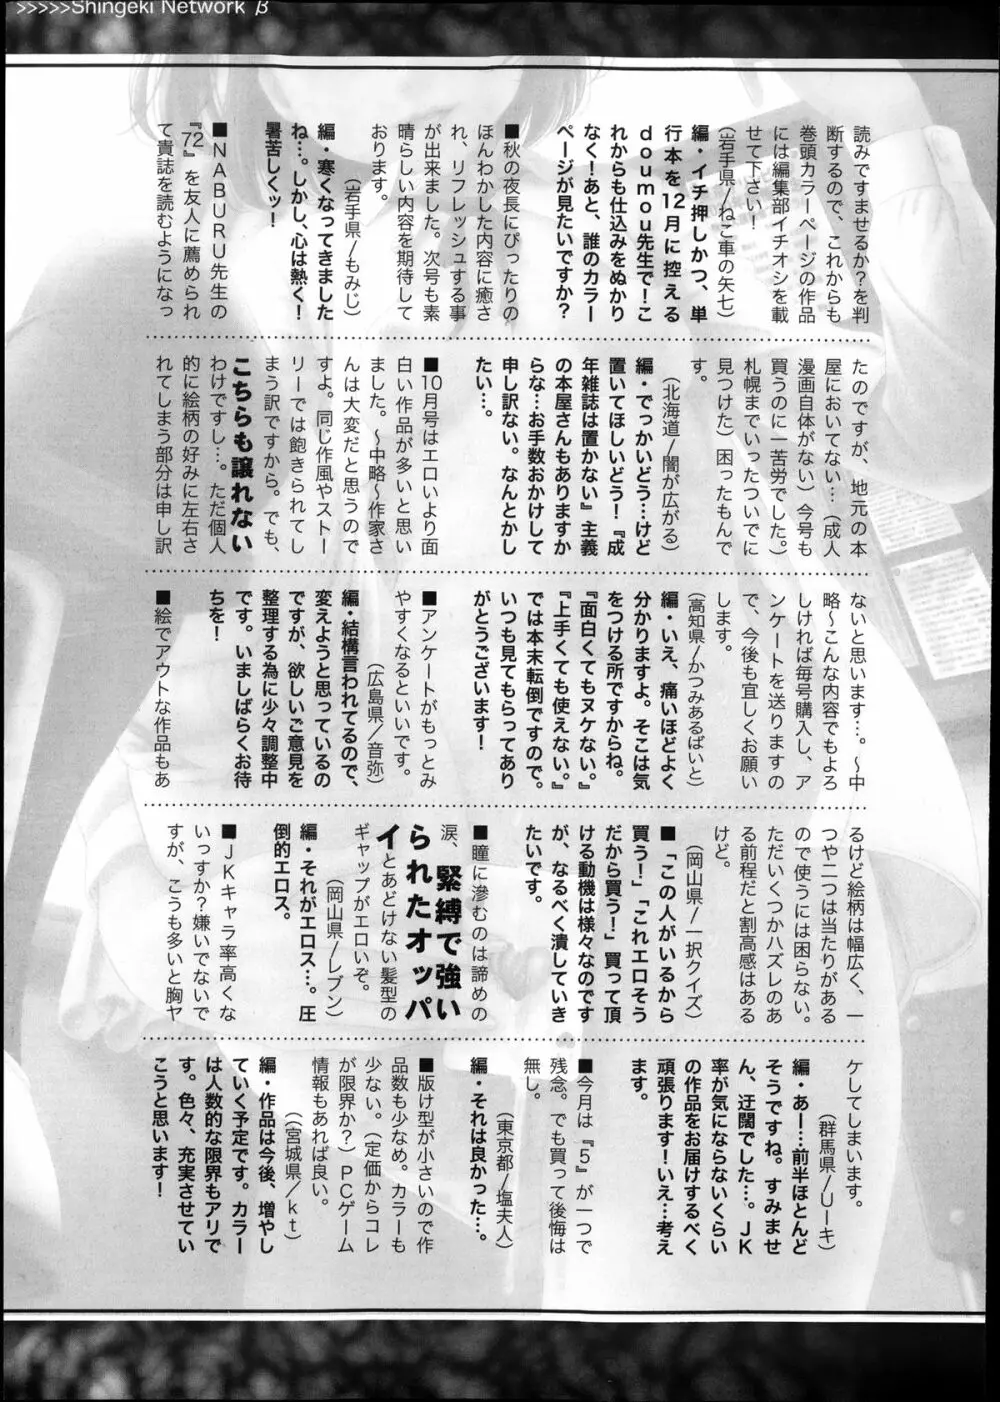 >>>>>Shingeki Network β
読みですませるか?を判
断するので、これからも
巻頭カラーページの作品
には編集部イチオシを載
せて下さい!
(岩手県/ねこ車の矢七)
編・イチ押しかつ、単
行本を12月に控える
doumou先生で!こ
れからも仕込みをぬかり
なく!あと、誰のカラー
ページが見たいですか?
■秋の夜長にぴったりの
ほんわかした内容に癒さ
れ、リフレッシュする事
が出来ました。次号も素
晴らしい内容を期待して
おります。
(岩手県/もみじ)
編・寒くなってきました
ね…。しかし、心は熱く!
暑苦しくッ!
■NABURU先生の
『72』を友人に薦められ
て貴誌を読むようになっ
たのですが、地元の本
屋においてない…(成人
漫画自体がない)今号も
買うのに一苦労でした。
札幌までいったついでに
見つけた)困ったもんで
す。
(北海道/闇が広がる)
編・でっかいどう…けど
置いてほしいどう!『成
年雑誌は置かない』主義
の本屋さんもありますか
らな…お手数おかけして
申し訳ない。なんとかし
たい…。
■10月号はエロいより面
白い作品が多いと思い
ました。〜中略〜作家さ
んは大変だと思うので
すよ。同じ作風やストー
リーでは飽きられてし
まう訳ですから。でも、
こちらも譲れない
わけですし…。ただ個人
的に絵柄の好みに左右さ
れてしまう部分は申し訳
ないと思います…。〜中
略〜こんな内容でもよろ
しければ毎号購入し、ア
ンケートを送りますの
で、今後も宜しくお願い
します。
(高知県/かつみあるぱいと)
編・いえ、痛いほどよく
分かりますよ。そこは気
をつける所ですからね。
『面白くてもヌケない。』
『上手くても使えない。』
では本末転倒ですので。
いつも見てもらってあり
がとうございます!
■アンケートがもっとみ
やすくなるといいです。
(広島県/音弥)
編・結構言われてるので、
変えようと思っているの
ですが、欲しいご意見を
整理する為に少々調整中
です。いましばらくお待
ちを!
■絵でアウトな作品もあ
るけど絵柄は幅広く、一
つや二つは当たりがある
ので使うには困らない。
ただいくつかハズレのあ
る前程だと割高感はある
けど。
(岡山県/一択クイズ)
■「この人がいるから
買う!」「これエロそう
だから買う!」買って頂
ける動機は様々なのです
が、なるべく潰していき
たいです。
■瞳に滲むのは諦めの
涙、緊縛で強い
られたオッパ
イとあどけない髪型の
ギャップがエロいぞ。
(岡山県/レブン)
編・それがエロス…。圧
倒的エロス。
■JKキャラ率高くな
いっすか?嫌いでないで
すが、こうも多いと胸ヤ
ケしてしまいます。
(群馬県/Uーキ)
編・あー…前半ほとんど
そうですね。すみませ
ん、迂闊でした…。JK
率が気にならないくらい
の作品をお届けするべく
頑張ります!いえ…考え
ます。
■今月は『5』が一つで
残念。でも買って後悔は
無し。
(東京都/塩夫人)
編・それは良かった…。
■版け型が小さいので作
品数も少なめ。カラーも
少ない。(定価からコレ
が限界か?)PCゲーム
情報もあれば良い。
(宮城県/kt)
編・作品は今後、増やし
ていく予定です。カラー
は人数的な限界もアリで
す。色々、充実させてい
こうと思います!